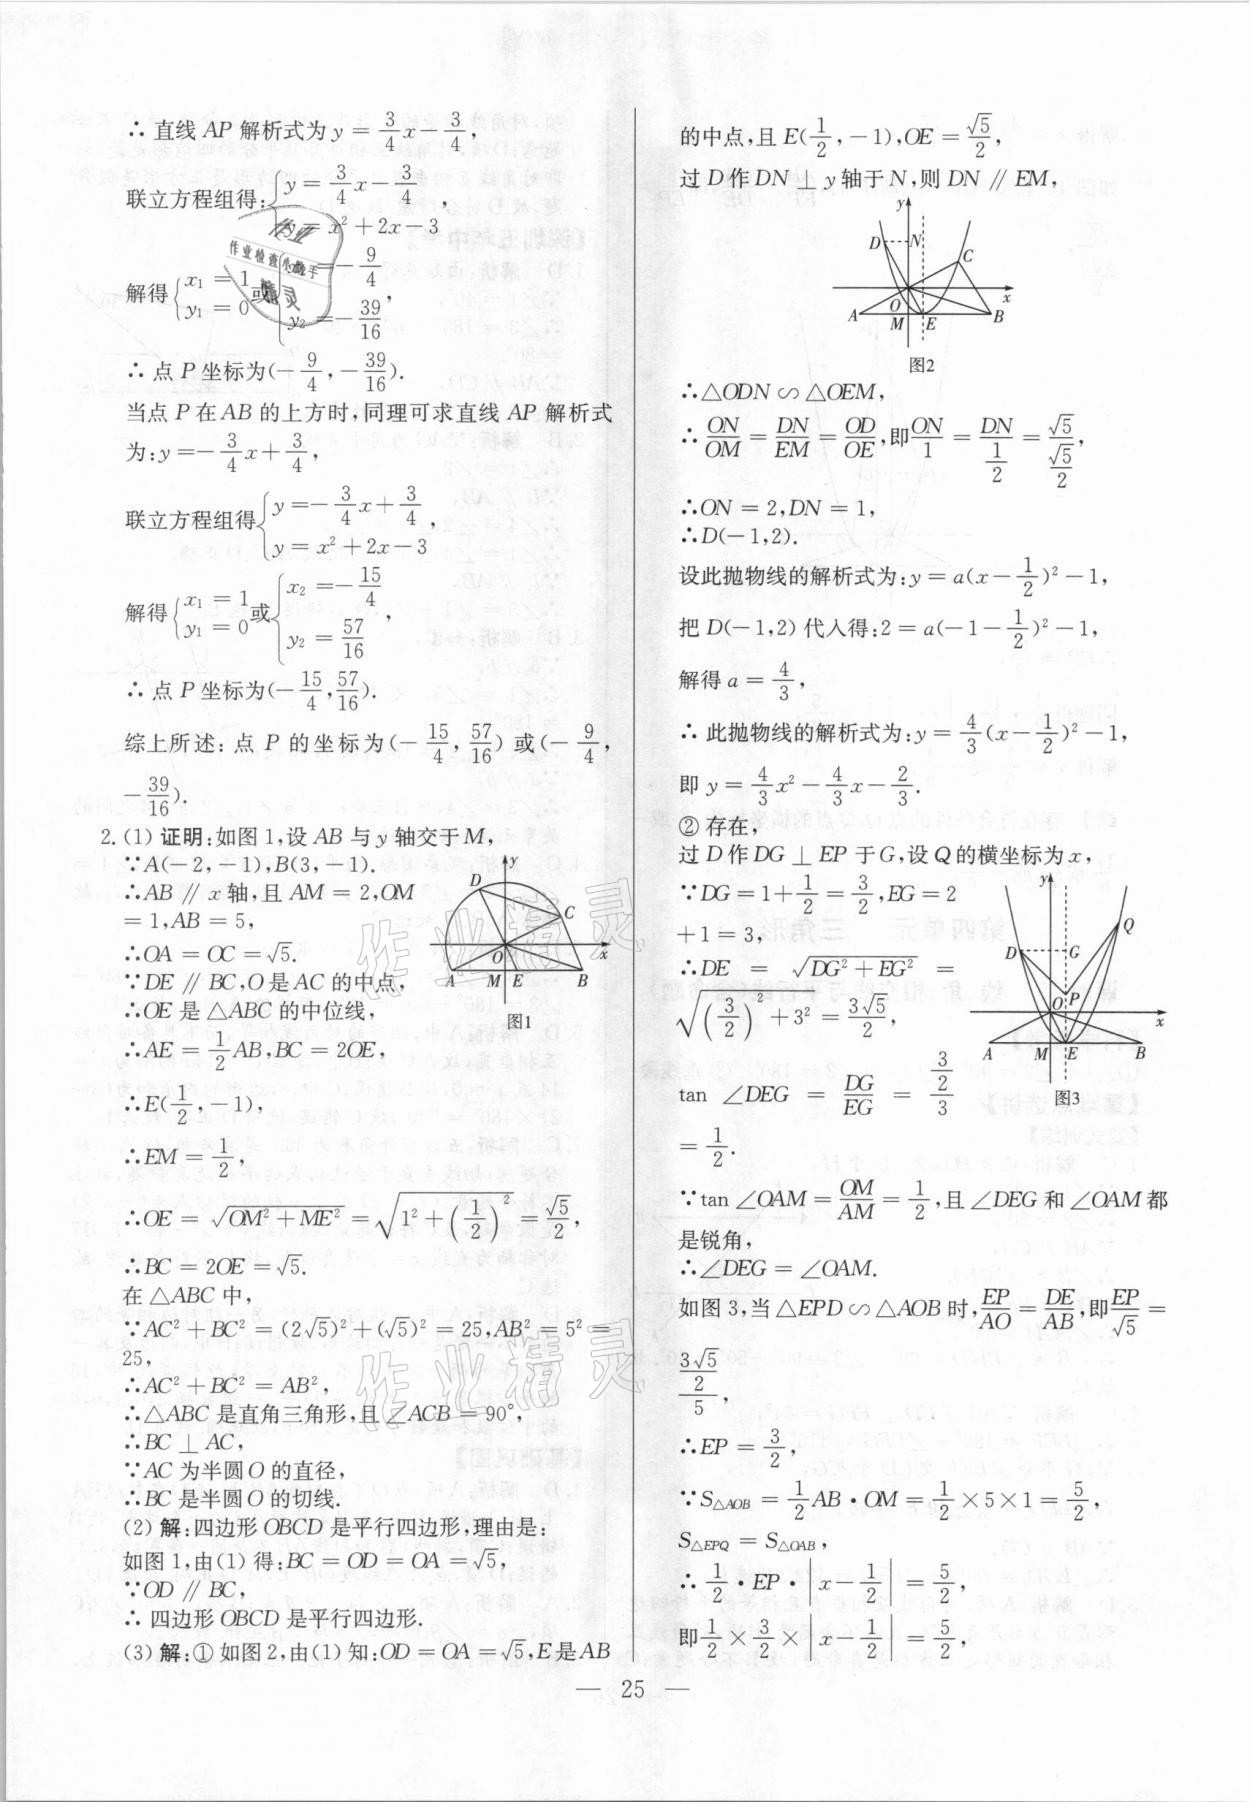 ∴ 直线 AP 解析式为 y = 3/4 x − 3/4,
联立方程组得: { y = 3/4 x − 3/4
y = x² + 2x − 3 ,
解得 { x₁ = 1
y₁ = 0 或 { x₂ = − 9/4
y₂ = − 39/16 ,
∴ 点 P 坐标为(− 9/4, − 39/16).
当点 P 在 AB 的上方时,同理可求直线 AP 解析式
为: y = − 3/4 x + 3/4,
联立方程组得 { y = − 3/4 x + 3/4
y = x² + 2x − 3 ,
解得 { x₁ = 1
y₁ = 0 或 { x₂ = − 15/4
y₂ = 57/16 ,
∴ 点 P 坐标为(− 15/4, 57/16).
综上所述: 点 P 的坐标为(− 15/4, 57/16) 或(− 9/4,
− 39/16).
2. (1) 证明:如图 1,设 AB 与 y 轴交于 M,
∵A(− 2, − 1),B(3, − 1).
∴AB ∥ x 轴,且 AM = 2,OM
= 1,AB = 5,
∴OA = OC = √5.
∵DE ∥ BC,O 是 AC 的中点,
∴OE 是 △ABC 的中位线,
∴AE = 1/2 AB,BC = 2OE,
∴E(1/2, − 1),
∴EM = 1/2,
∴OE = √(OM² + ME²) = √(1² + (1/2)²) = √5/2,
∴BC = 2OE = √5.
在 △ABC 中,
∵AC² + BC² = (2√5)² + (√5)² = 25,AB² = 5² =
25,
∴AC² + BC² = AB²,
∴△ABC 是直角三角形,且 ∠ACB = 90°,
∴BC ⊥ AC,
∵AC 为半圆 O 的直径,
∴BC 是半圆 O 的切线.
(2) 解:四边形 OBCD 是平行四边形,理由是:
如图 1,由(1) 得:BC = OD = OA = √5,
∵OD ∥ BC,
∴ 四边形 OBCD 是平行四边形.
(3) 解:① 如图 2,由(1) 知:OD = OA = √5,E 是 AB
y
D
C
O
x
A
M
E
B
图1
的中点,且 E(1/2, − 1),OE = √5/2,
过 D 作 DN ⊥ y 轴于 N,则 DN ∥ EM,
y
D
N
C
O
x
A
M
E
B
图2
∴△ODN ∽ △OEM,
∴ ON/OM = DN/EM = OD/OE,即 ON/1 = DN/(1/2) = √5/(√5/2),
∴ON = 2,DN = 1,
∴D(− 1,2).
设此抛物线的解析式为: y = a(x − 1/2)² − 1,
把 D(− 1,2) 代入得: 2 = a(− 1 − 1/2)² − 1,
解得 a = 4/3,
∴ 此抛物线的解析式为: y = 4/3 (x − 1/2)² − 1,
即 y = 4/3 x² − 4/3 x − 2/3.
② 存在,
过 D 作 DG ⊥ EP 于 G,设 Q 的横坐标为 x,
∵DG = 1 + 1/2 = 3/2,EG = 2
+ 1 = 3,
∴DE = √(DG² + EG²) =
√((3/2)² + 3²) = 3√5/2,
tan ∠DEG = DG/EG = (3/2)/3
= 1/2.
y
Q
D
G
P
O
x
A
M
E
B
图3
∵tan ∠OAM = OM/AM = 1/2,且 ∠DEG 和 ∠OAM 都
是锐角,
∴∠DEG = ∠OAM.
如图 3,当 △EPD ∽ △AOB 时, EP/AO = DE/AB,即 EP/√5 =
(3√5/2)/5,
∴EP = 3/2,
∵S△AOB = 1/2 AB · OM = 1/2 × 5 × 1 = 5/2,
S△EPQ = S△OAB,
∴ 1/2 · EP · |x − 1/2| = 5/2,
即 1/2 × 3/2 × |x − 1/2| = 5/2,
— 25 —
作业
作业检查小助手
精灵
作业精灵
作业精灵